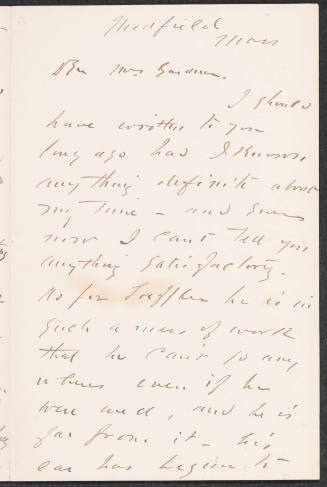 Medfield
Mass
Dear Mrs Gardner.
I should
have written to you
long ago had I known
any thing definite about
my time - and even
now I can't tell you
anything satisfactory.
As for Loeffler he is in
such a mess of work
that he can't go any
where even if he
were asked, and he is
far from it - his
ear has begun to